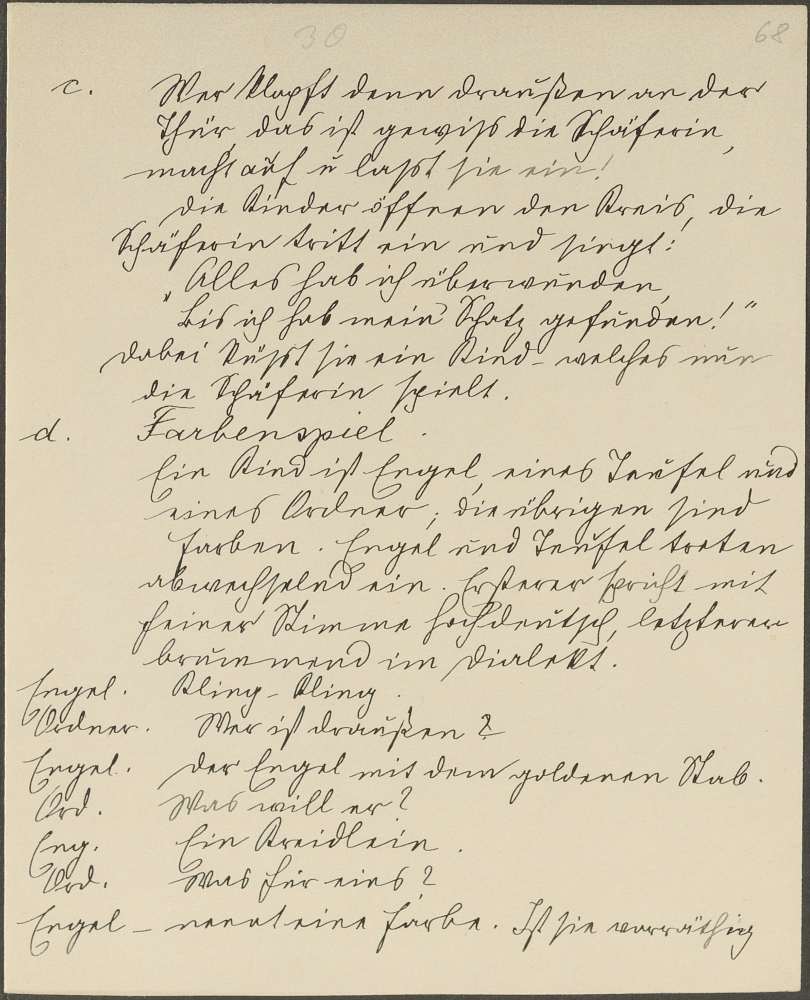 30
68
c. Wer klopft denn draußen an der
Thür, das ist gewiss die Schäferin,
macht auf u lasst sie ein!
Die Kinder öffnen den Kreis, die
Schäferin tritt ein und singt:
„Alles hab ich überwunden,
Bis ich hab mein Schatz gefunden!"
Dabei küsst sie ein Kind - welches nun
die Schäferin spielt.
d. Farbenspiel.
Ein Kind ist Engel, eines Teufel und
eines Ordner; die übrigen sind
Farben. Engel und Teufel treten
abwechselnd ein. Ersterer spricht mit
feiner Stimme hochdeutsch, letzterer
brummend im Dialekt.
Engel. Kling-kling.
Ordner. Wer ist draußen?
Engel. Der Engel mit dem goldenen Stab.
Ord. Was will er?
Eng. Ein Kreidlein.
Ord. Was für eins?
Engel - nennt eine Farbe. Ist sie vorräthig